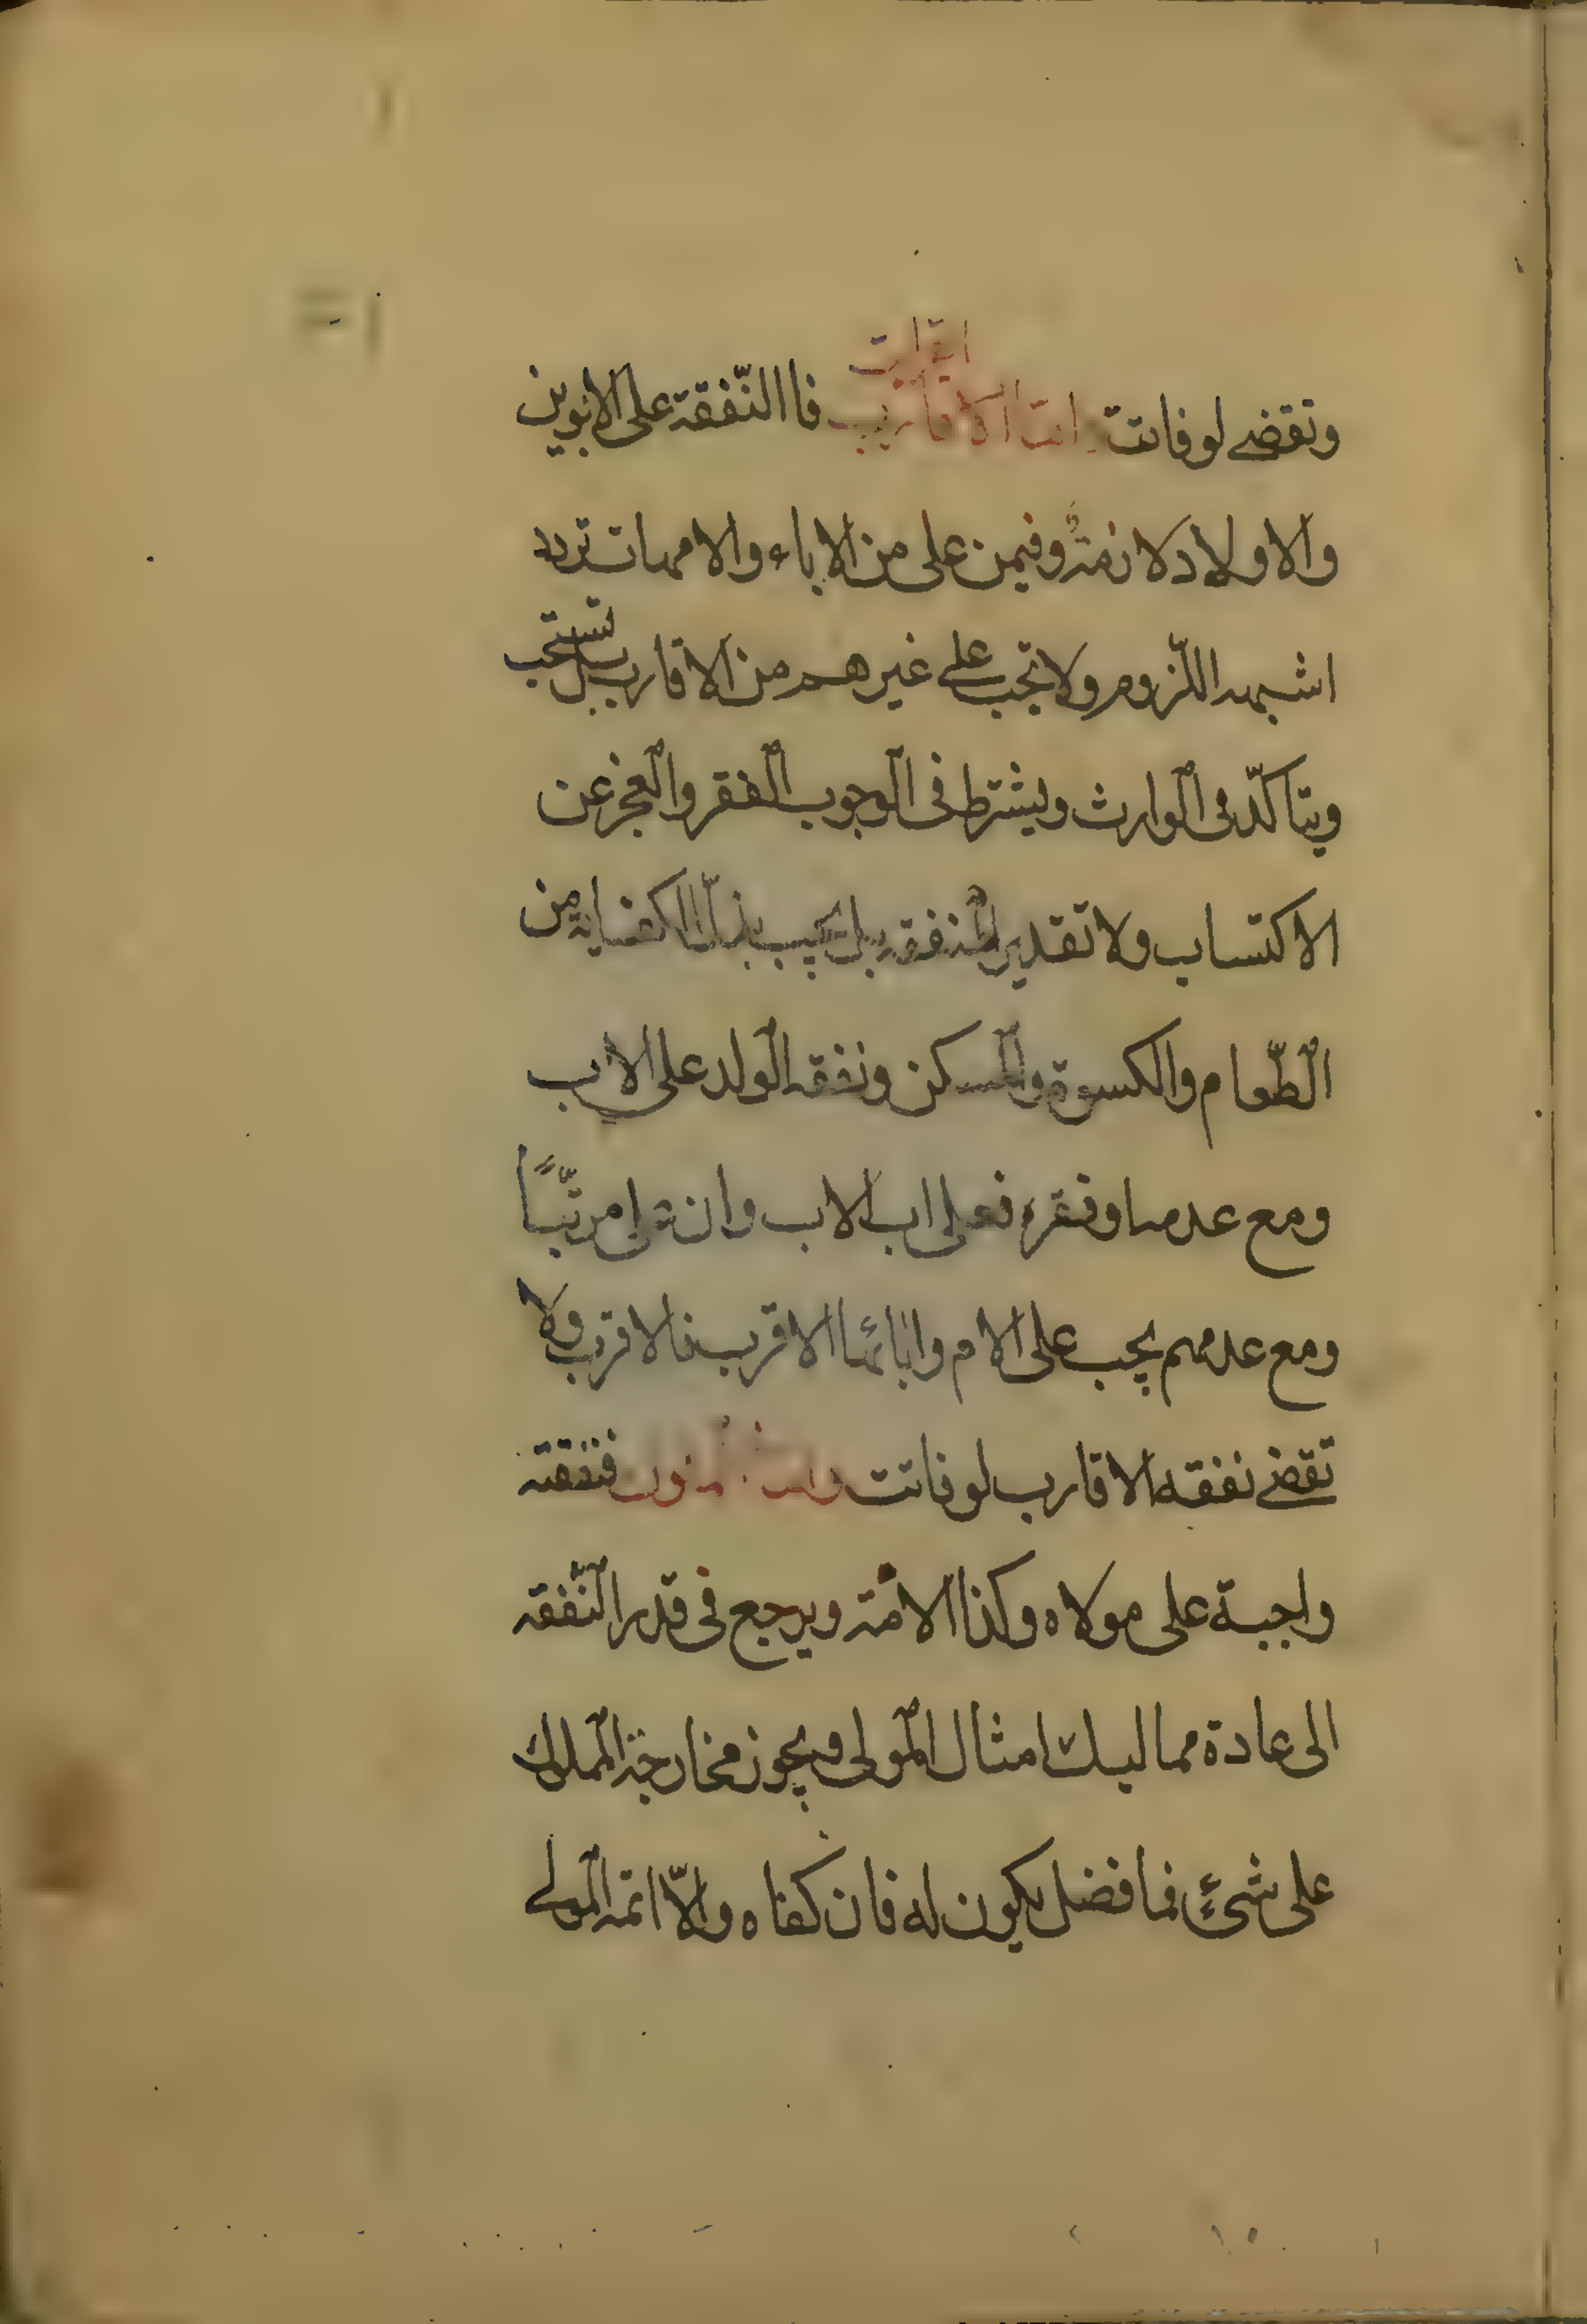 وتقضى لو فاتت اما الاقارب فاالنّفقة على الابوين
والاولاد لازمةٌ وفيمن على من الاباء والامهات تردد
اشبهه اللّزوم ولا تجب على غيرهم من الاقارب بل تستحب
ويتاكّد فى الوارث ويشترط فى الوجوب الفقر والعجز عن
الاكتساب ولا تقدير للنفقه بل يجب بذل الكفاية من
الطّعام والكسوة والمسكن ونفقه الولد على الاب
ومع عدمه او فقره فعلى اب الاب وان على مرتّبًا
ومع عدمهم يجب على الام وابائها الاقرب فالاقرب ولا
تقضى نفقه الاقارب لو فاتت واما المملوك فنفقته
واجبة على مولاه وكذا الامة ويرجع فى قدر النّفقه
الى عادة مماليك امثال المولى ويجوز مخارجة المملوك
على شئٍ فما فضل يكون له فان كفاه والّا اتمه المولى